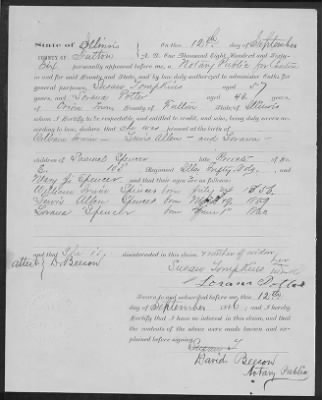 State of Illinois On this 12th day of September
COUNTY OF Fulton A. D. One Thousand Eight Hundred and Sixty-
Six personally appeared before me, a Notary Public for
in and for said County and State, and by law duly authorized to administer Oaths for
general purposes, Susan Tompkins aged 57
years, and Lorana Potter aged 46 years,
of Orion Town County of Fulton State of Illinois
whom I Certify to be respectable and entitled to credit, and who, being duly sworn ac-
cording to law, declare, that she was present at the birth of
William Irwin - Lewis Allen - and Lorana -
children of Samuel Spencer late Private of Co
E. 103 Regiment Ills Infty. Vols. and
Mary J Spencer and that their ages are as follows:
William Irwin Spencer born July 1856.
Lewis Allen Spencer born 19 1859
Lorana Spencer born June 1860
and that She is disinterested in this claim, & mother of widow
attest D. Beeson Susan Tompkins her
mark
Lorana Potter
Sworn to and subscribed before me this 12th
day of September 1866, and I hereby
Certify that I have no interest in this claim, and that
the contents of the above were made known and ex-
plained before signing
David Beeson
Notary Public